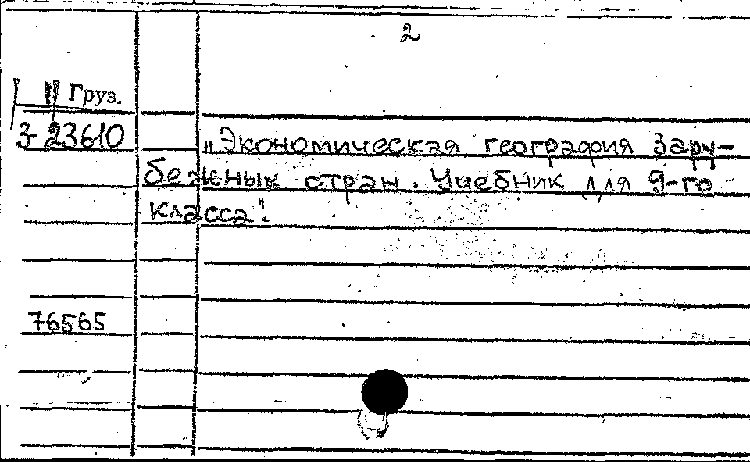 2
Груз.
3-23610
„Экономическая география зару-
бежных стран. Учебник для 9-го
класса".
76565